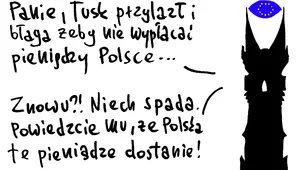 Panie, Tusk przylazł i
błaga żeby nie wypłacać
pieniędzy Polsce...
Znowu?! Niech spada.
Powiedzcie mu, że Polska
te pieniądze dostanie!